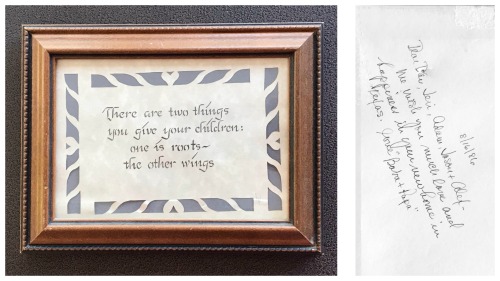 There are two things
you give your children:
one is roots~
the other wings
8/16/86
Dear Jovi, Adam, Jason +
We wish you much love and
happiness in your new home in
Baba + Papa